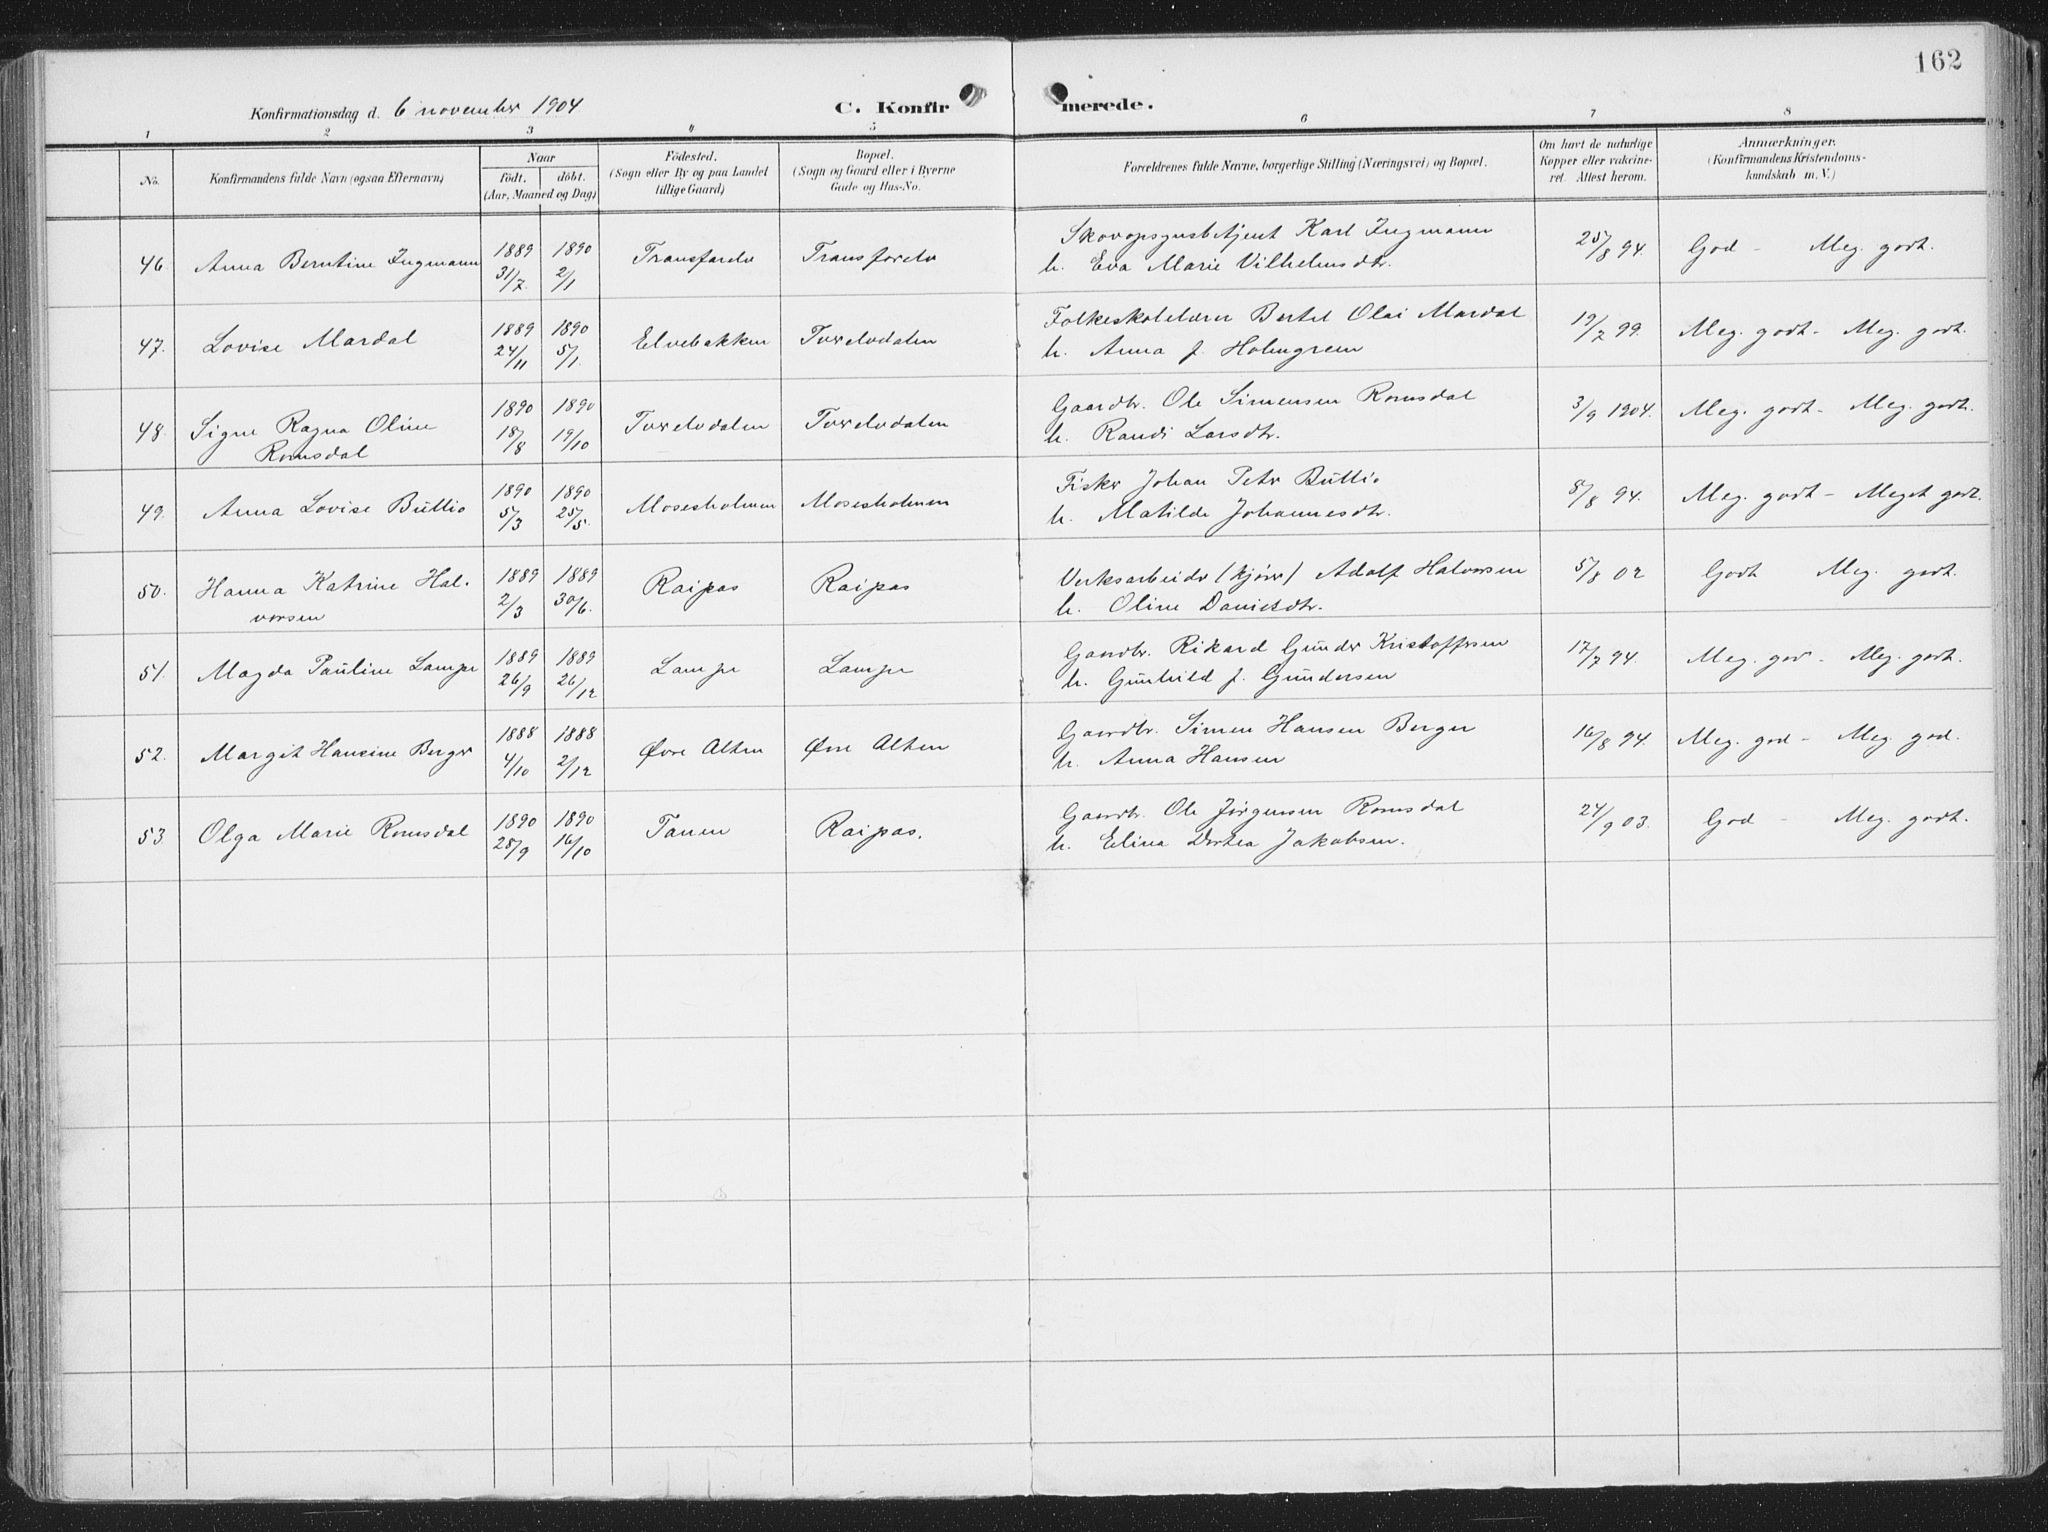 162
Konfirmationsdag d. 6 november 1904 C. Konfir merede.
1 2 3 4 5 6 7 8
No. Konfirmandens fulde Navn (ogsaa Efternavn) Naar födt. döbt. (Aar, Maaned og Dag) Födested. (Sogn eller By og paa Landet tillige Gaard) Bopæl. (Sogn og Gaard eller i Byerne Gade og Hus-No. Forældrenes fulde Navne, borgerlige Stilling (Næringsvei) og Bopæl. Om havt de naturlige Kopper eller vakcineret. Attest herom. Anmærkninger. (Konfirmandens Kristendomskundskab m. V.)
46. Anna Berntine Ingmann 1889 31/7 1890 2/1 Transfarelv Transfarelv Skovopsynsbetjent Karl Ingmann 25/8 94. God - Meg. godt.
h. Eva Marie Vilhelmsdtr.
47. Lovise Mardal 1889 24/11 1890 5/1. Elvebakken Tverelvdalen Folkeskolelærer Bertel Olai Mardal 19/7 99. Meg. godt - Meg. godt.
h. Anna f. Holmgreen
48. Signe Ragna Oline 1890 18/8 1890 19/10 Tverelvdalen Tverelvdalen Gaardbr. Ole Simensen Romsdal 3/9 1904. Meg. godt - Meg. godt.
Romsdal h. Randi Larsdtr.
49. Anna Lovise Buttio 1890 5/3 1890 25/5. Mosesholmen Mosesholmen Fisker Johan Peter Buttio 8/8 94. Meg. godt - Meget godt.
h. Matilde Johannesdtr.
50. Hanna Katrine Hal- 1889 2/3 1889 30/6. Raipas Raipas Verksarbeider (kjører) Adolf Halvorsen 5/8 02 Godt Meg. godt.
vorsen h. Oline Danielsdtr.
51. Magda Pauline Lampe 1889 26/9 1889 26/12 Lampe Lampe Gaardbr. Rikard Gunder Kristoffersen 17/7 94. Meg. god - Meg. godt.
h. Gunhild f. Gundersen
52. Margit Hansine Berger 1888 4/10 1888 2/12 Øvre Alten Øvre Alten Gaardbr. Simen Hansen Berger 16/8 94. Meg. god - Meg. god.
h. Anna Hansen
53. Olga Marie Romsdal 1890 28/9 1890 16/10 Tanen Raipas. Gaardbr. Ole Jørgensen Romsdal 24/9 03. God - Meg. godt.
h. Elina Dortea Jakobsen.